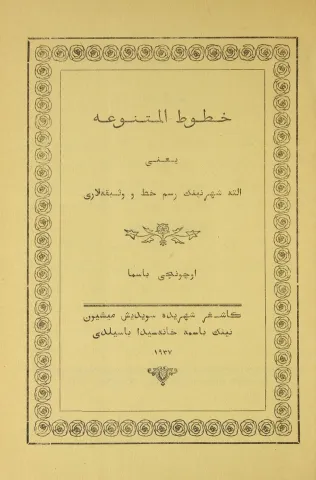 خطوط المتنوعه
یعنی
التە شهر نینك رسم خط و وثیقەلاری
اوچونچی باسما
كاشغر شهریده سویدیش میشیون
نینك باسمە خانەسیدا باسیلدی
١٩٣٧